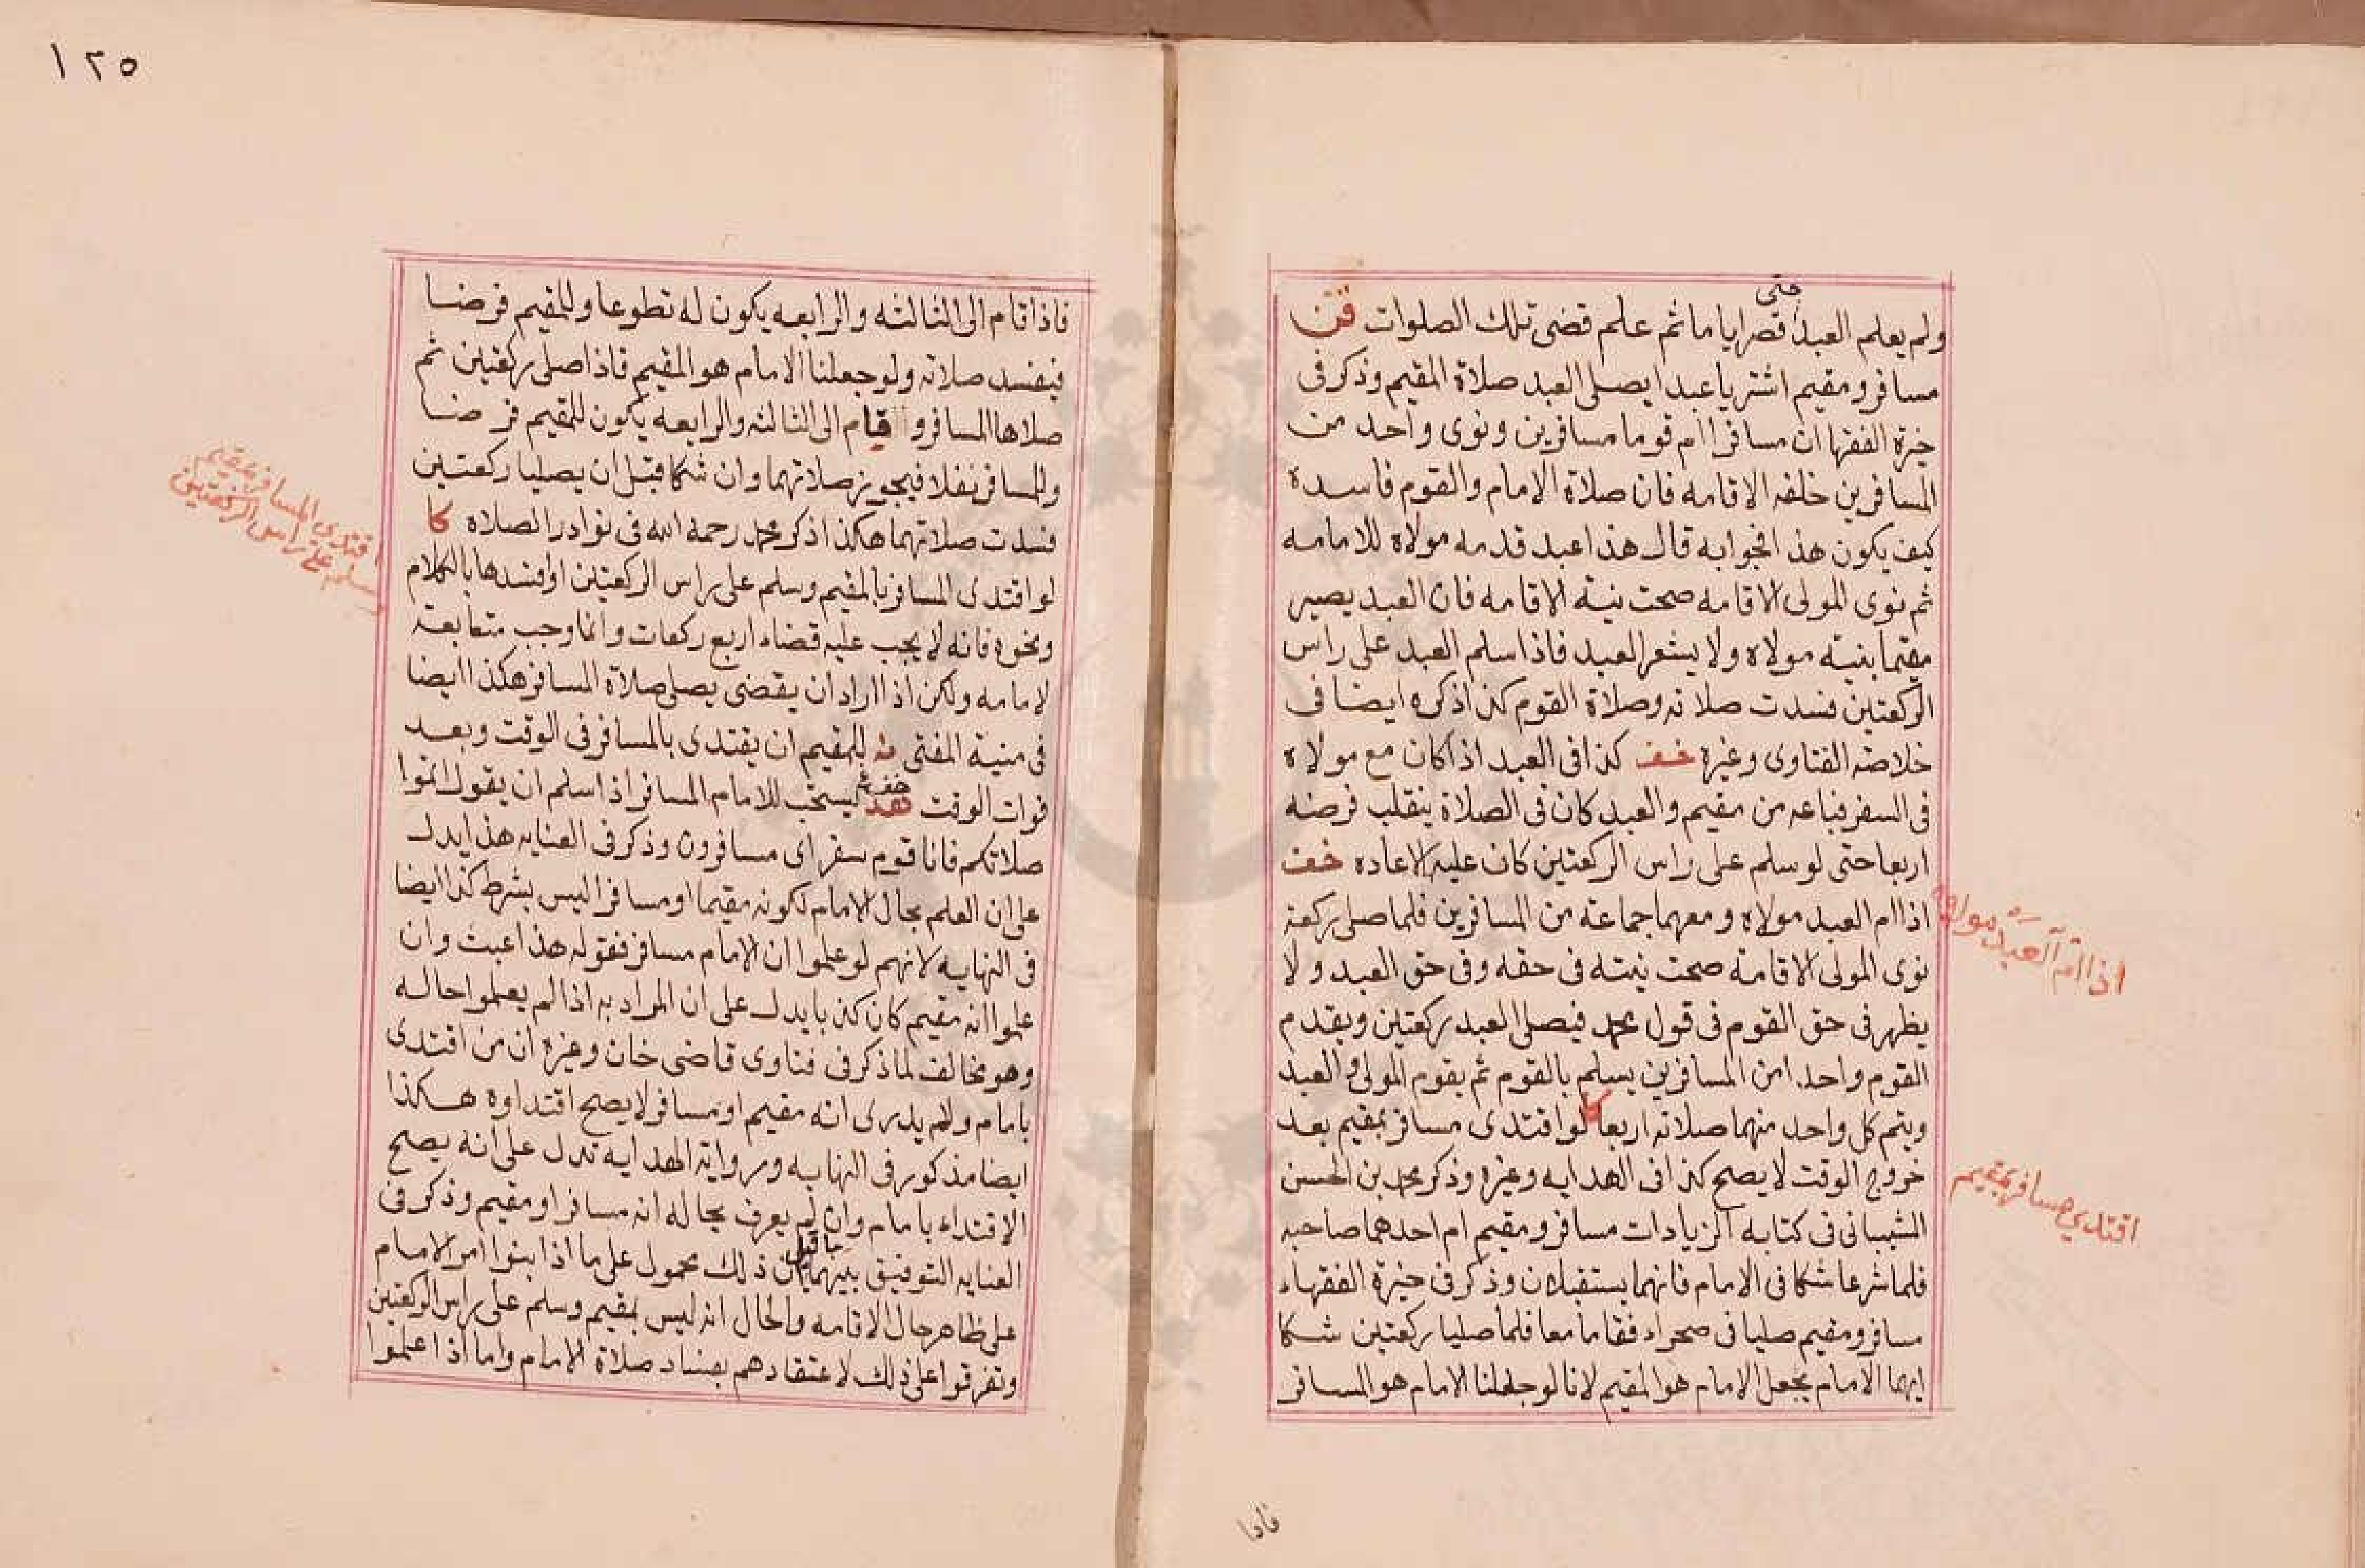 حتى
ولم يعلم العبد قصر اياما ثم علم قضى تلك الصلوات قن
مسافر ومقيم اشتريا عبدا يصلى العبد صلاة المقيم وذكر فى
خيرة الفقها ان مسافرا ام قوما مسافرين ونوى واحد من
المسافرين خلفه الاقامه فان صلاة الامام والقوم فاسدة
كيف يكون هذا لجوابه قال هذا عبد قدمه مولاه للامامه
ثم نوى المولى الاقامه صحت نية الاقامه فان العبد يصير
مقيما بنيته مولاه ولا يشعر العبد فاذا سلم العبد على راس
الركعتين فسدت صلاته وصلاة القوم كذا ذكره ايضا فى
خلاصه الفتاوى وغيره خف كذا فى العبد اذا كان مع مولاه
فى السفر فباعه من مقيم والعبد كان فى الصلاة ينقلب فرضه
اربعا حتى لو سلم على راس الركعتين كان عليه الاعاده خف
اذا ام العبد مولاه ومعهما جماعة من المسافرين فلما صلى ركعة
نوى المولى الاقامة صحت نيته فى حقه وفى حق العبد ولا
يظهر فى حق القوم فى قول محمد فيصلى العبد ركعتين ويقدم
القوم واحدا من المسافرين يسلم بالقوم ثم يقوم المولى والعبد
ويتم كل واحد منهما صلاته اربعا كا لو اقتدى مسافر بمقيم بعد
خروج الوقت لا يصح كذا فى الهدايه وغيره وذكر محمد بن الحسن
الشيبانى فى كتابه الزيادات مسافر ومقيم ام احدهما صاحبه
فلما شرعا شكا فى الامام فانهما يستقبلان وذكر فى خيرة الفقهاء
مسافر ومقيم صليا فى صحراء فقاما معا فلما صليا ركعتين شكا
ايهما الامام يجعل الامام هو المقيم لانا لو جعلنا الامام هو المسافر
اذا ام العبد مولاه
اقتدى مسافر بمقيم
فاذا
١٢٥
فاذا قام الى الثالثه والرابعه يكون له تطوعا وللمقيم فرضا
فيفسد صلاته ولو جعلنا الامام هو المقيم فاذا صلى ركعتين ثم
صلاها المسافر و قيام الى الثالثه والرابعه يكون للمقيم فرضا
وللمسافر نفلا فيجوز صلاتهما وان شكا قبل ان يصليا ركعتين
فسدت صلاتهما هكذا ذكر محمد رحمه الله فى نوادر الصلاه كا
لو اقتدى المسافر بالمقيم وسلم على راس الركعتين او افسدها بالكلام
ونحوه فانه لا يجب عليه قضاء اربع ركعات وانما وجب متابعة
لامامه ولكن اذا اراد ان يقضى يصلى صلاة المسافر هكذا ايضا
فى منية المفتى للمقيم ان يقتدى بالمسافر فى الوقت وبعد
فوات الوقت هد يستحب للامام المسافر اذا سلم ان يقول اتموا
صلاتكم فانا قوم سفر اى مسافرون وذكر فى العنايه هذا يدل
على ان العلم بحال الامام لكونه مقيما او مسافرا ليس بشرط كذا ايضا
فى النهايه لانهم لو علموا ان الامام مسافر فقوله هذا عبث وان
علموا انه مقيم كان كذبا يدل على ان المراد به اذا لم يعلموا حاله
وهو مخالف لما ذكر فى فتاوى قاضى خان وغيره ان من اقتدى
بامام ولم يدرى انه مقيم او مسافر لا يصح اقتداوه هكذا
ايضا مذكور فى النهايه ورواية الهدايه تدل على انه يصح
الاقتداء بامام وان لم يعرف بحاله انه مسافر او مقيم وذكر فى
العنايه التوفيق بينهما ان ذلك محمول على ما اذا بنوا امر الامام
على ظاهر حال الاقامه والحال انه ليس بمقيم وسلم على راس الركعتين
وتفرقوا على ذلك لاعتقادهم بفساد صلاة الامام واما اذا علموا
اقتدى المسافر بمقيم
سلم على راس الركعتين